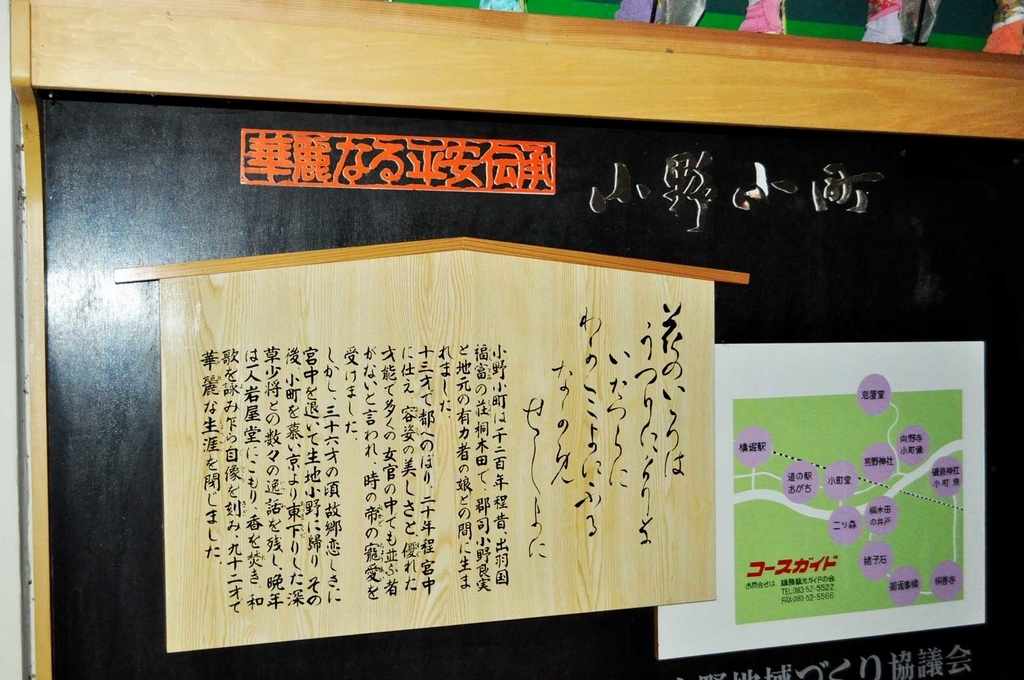 華麗なる平安伝承
小野小町
花のいろは
うつりにけりな
いたつらに
わかみよにふる
なかめ
せしまに
小野小町は千二百年程昔、出羽国
福富の荘桐木田で、郡司小野良実
と地元の有力者の娘との間に生ま
れました。
十三才で都へのぼり、二十年程宮中
に仕え、容姿の美しさと、優れた
才能で多くの女官の中でも並ぶ者
がないと言われ、時の帝の寵愛を
受けました。
しかし、三十六才の頃故郷恋しさに
宮中を退いて生地小野に帰り、その
後、小町を慕い京より東下りした深
草少将との数々の逸話を残し、晩年
は一人岩屋堂にこもり、香を焚き、和
歌を詠み乍ら自像を刻み、九十二才で
華麗な生涯を閉じました。
岩屋堂
横堀駅
向野寺
小町像
熊野神社
磯前神社
小町泉
道の駅
おがち
小町堂
桐木田
の井戸
二ッ森
姥子石
御返事橋
桐善寺
コースガイド
お問合せは、雄勝観光ガイドの会
TEL.083-52-5522
FAX.083-52-5566
小野地域づくり協議会